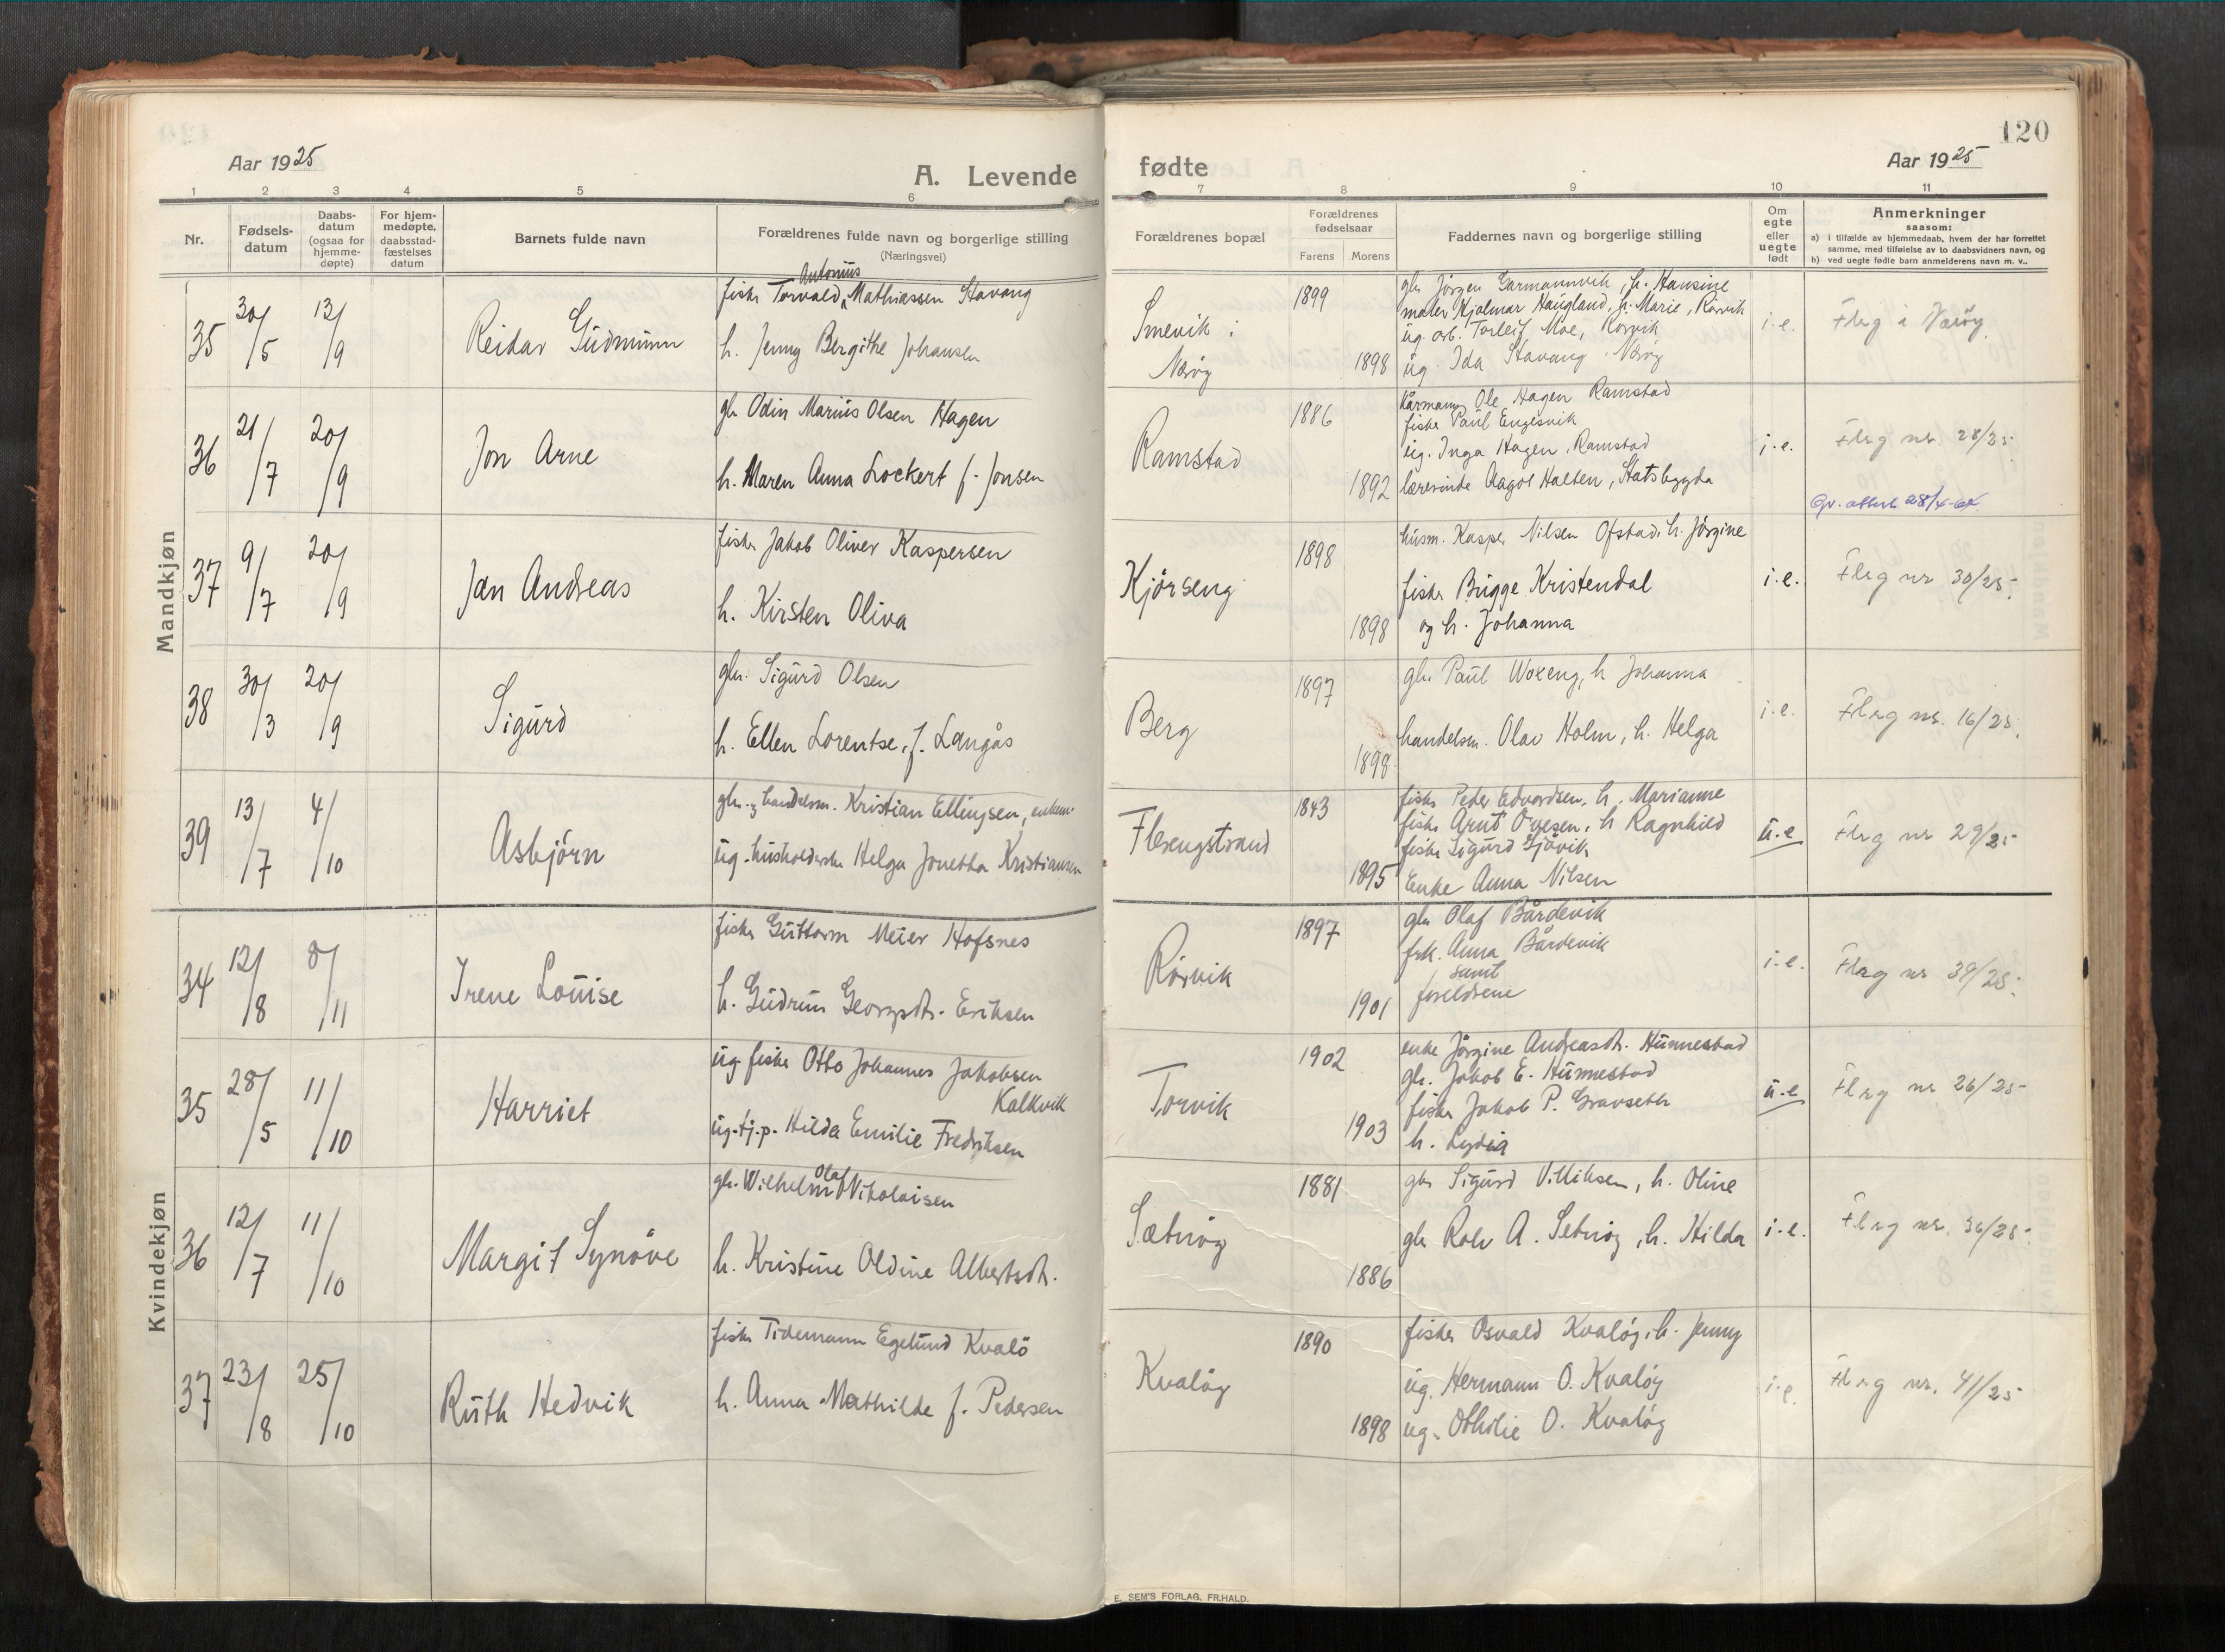 120
Aar 1925
A. Levende
fødte
Aar 1925
1 2 3 4 5 6 7 8 9 10 11
Nr.
Fødsels-
datum
Daabs-
datum
(ogsaa for
hjemme-
døpte)
For hjem-
medøpte,
daabsstad-
fæstelses
datum
Barnets fulde navn
Forældrenes fulde navn og borgerlige stilling
(Næringsvei)
Forældrenes bopæl
Forældrenes
fødselsaar
Farens Morens
Faddernes navn og borgerlige stilling
Om
egte
eller
uegte
født
Anmerkninger
saasom:
a) i tilfælde av hjemmedaab, hvem der har forrettet
samme, med tilføielse av to daabsvidners navn, og
b) ved uegte fødte barn anmelderens navn m. v..
Mandkjøn
35
30/5
13/9
Reidar Gudmunn
Antonius
fisker Torvald Mathiassen Stavang
h. Jenny Bergithe Johansen
Smevik i
Nærøy
1899
1898
gbr Jörgen Garmannvik, h. Hansine
maler Hjalmar Haugland, h. Marie, Rörvik
ug. arb. Torleif Moe, Rörvik
ug. Ida Stavang Nærøy
i.e.
Flrg i Nærøy
36
21/7
20/9
Jon Arne
gbr Odin Marius Olsen Hagen
h. Maren Anna Lockert f. Jonsen
Ramstad
1886
1892
kårmann Ole Hagen Ramstad
fisker Paul Engesvik
ug. Inga Hagen, Ramstad
lærerinde Aagot Halten, Statsbygda
i.e.
Flrg nr. 28/25
37
9/7
20/9
Jan Andreas
fisker Jakob Oliver Kaspersen
h. Kirsten Oliva
Kjörseng
1898
1898
husm. Kasper Nilsen Ofstad, h. Jörgine
fisker Brügge Kristendal
og h. Johanna
i.e.
Flrg nr 30/25
38
30/3
20/9
Sigurd
gbr. Sigurd Olsen
h. Ellen Lorentse, f. Langås
Berg
1897
1898
gbr Paul Woxeng, h Johanna
handelsm. Olav Holm, h. Helga
i.e.
Flrg nr. 16/25
39
13/7
4/10
Asbjörn
gbr. og handelsm. Kristian Ellingsen, enkem.
ug. husholderske Helga Jonetta Kristiansen
Flerengstrand
1843
1895
fisker Peder Edvardsen, h. Marianne
fisker Arnt Ovesen, h Ragnhild
fisker Sigurd Gjövik
Enke Anna Nilsen
u.e
Flrg nr 29/25
Kvindekjøn
34
12/8
8/11
Irene Louise
fisker Guttorm Meier Hofsnes
h. Gudrun Georgsdtr. Eriksen
Rörvik
1897
1901
gbr Olaf Bårdevik
frk. Anna Bårdevik
samt
foreldrene
i.e.
Flrg nr 39/25
35
28/5
11/10
Harriet
ug fisker Otto Johannes Jakobsen
Kalkvik
ug. tj.p. Hilda Emilie Fredriksen
Torvik
1902
1903
enke Jörgine Andreasdtr. Hunnestad
gbr. Jakob E. Hunnestad
fisker Jakob P. Gravseth
h. Lydia
u.e
Flrg nr 26/25
36
12/7
11/10
Margit Synöve
Olaf
gbr. Wilhelm Nikolaisen
h. Kristine Oldine Albertsdtr.
Sætnöy
1881
1886
gbr Sigurd Villiksen, h. Oline
gbr Rolv A. Setnöy, h. Hilda
i.e.
Flrg nr. 36/25
37
23/8
25/10
Ruth Hedvik
fisker Tidemann Egelund Kvalö
h. Anna Mathilde f. Pedersen
Kvalöy
1890
1898
fisker Osvald Kvalöy, h. Jenny
ug. Hermann O. Kvalöy
ug. Othilie O. Kvalöy
i.e.
Flrg nr. 41/25
E. SEM'S FORLAG. FR.HALD.